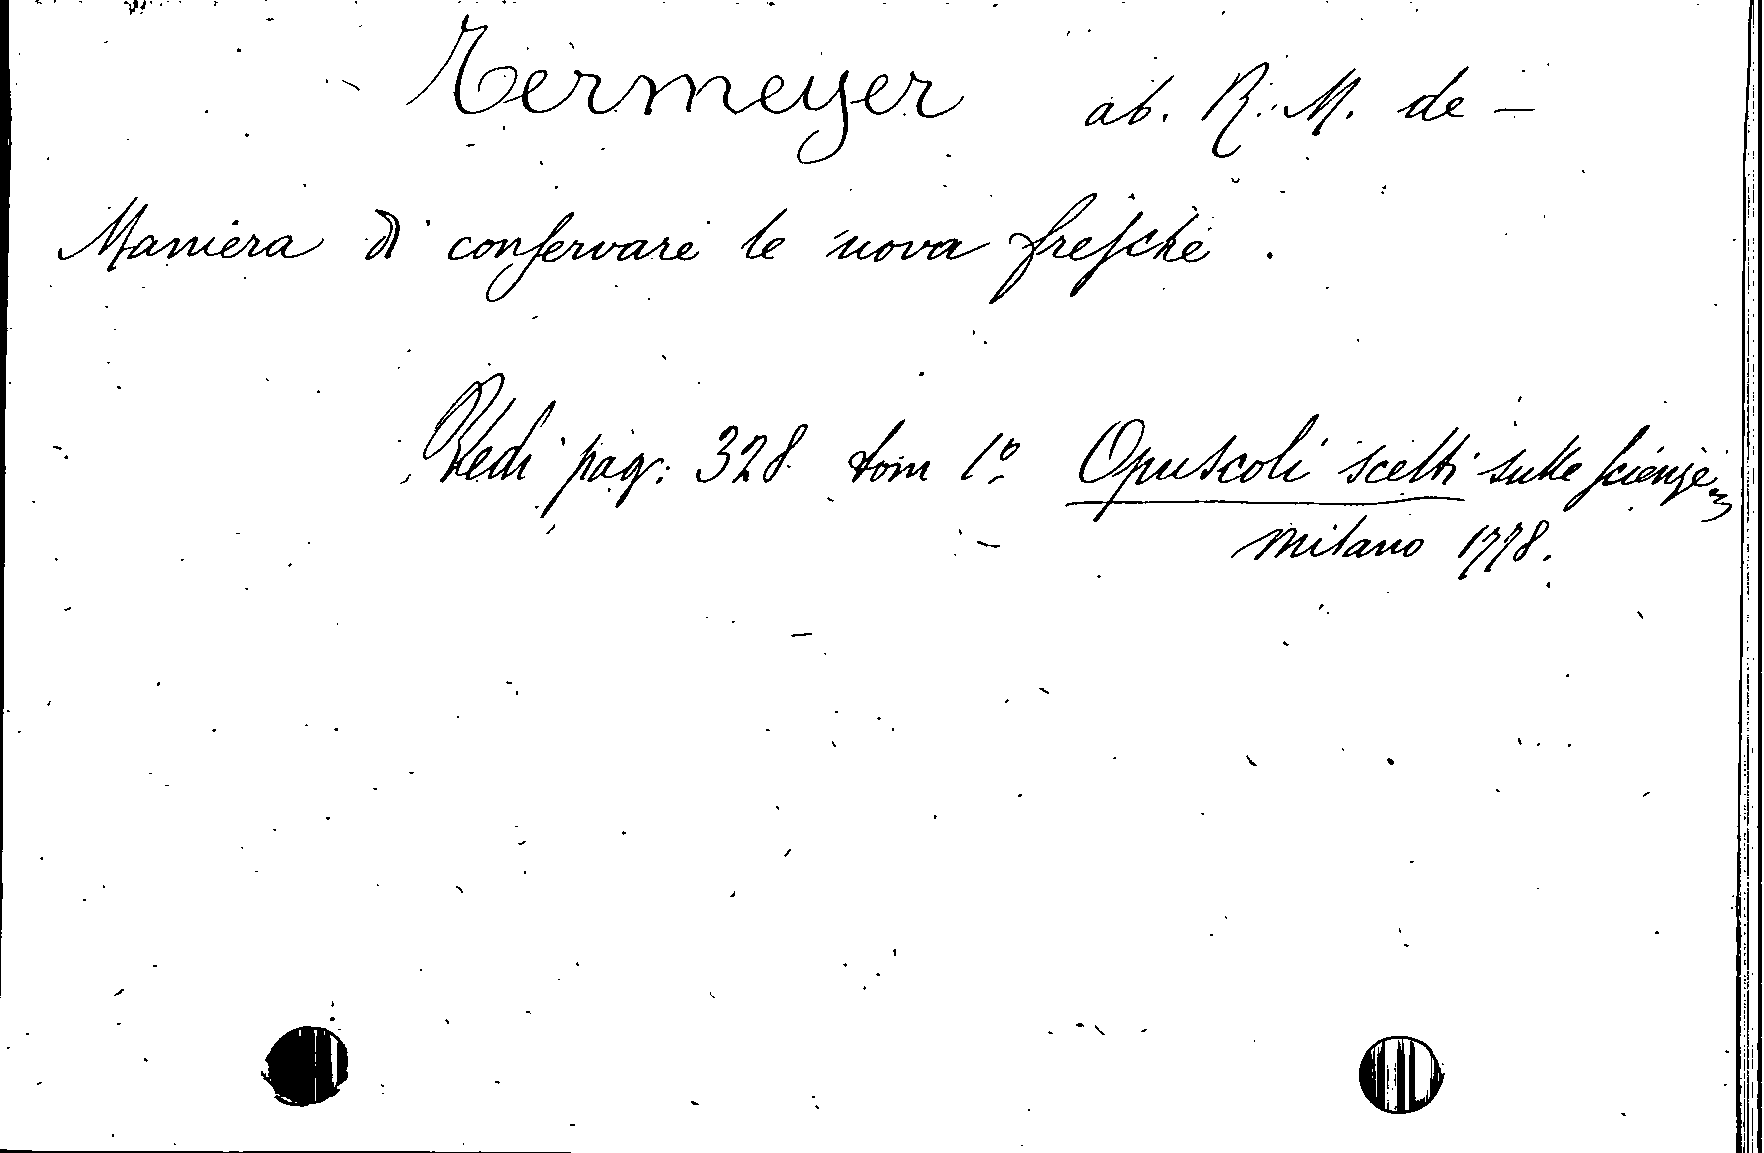 Termeyer ab. R. M. de —
Maniera di conservare le uova fresche.
Vedi pag: 328 tom 1º Opuscoli scelti sulle scienze
Milano 1778.